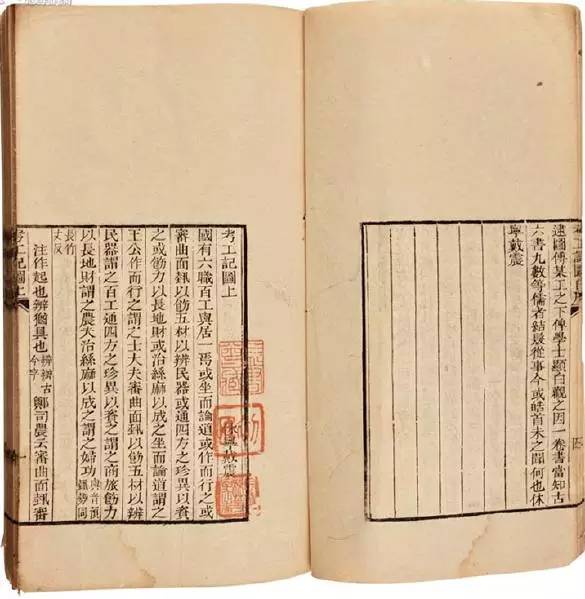 逮圖傅某工之下俾學士顯白觀之因一卷書當知古
六書九數等儒者結髮從事今或皓首未之聞何也休
寧戴震
考工記圖上
休寧戴震
國有六職百工與居一焉或坐而論道或作而行之或
審曲面埶以飭五材以辨民器或通四方之珍異以資
之或飭力以長地財或治絲麻以成之坐而論道謂之
王公作而行之謂之士大夫審曲面埶以飭五材以辨
民器謂之百工通四方之珍異以資之謂之商旅飭力
以長地財謂之農夫治絲麻以成之謂之婦功與音預埶勢同
長竹丈反
注作起也辨猶具也辨辦古今字鄭司農云審曲面埶審
考工記圖上